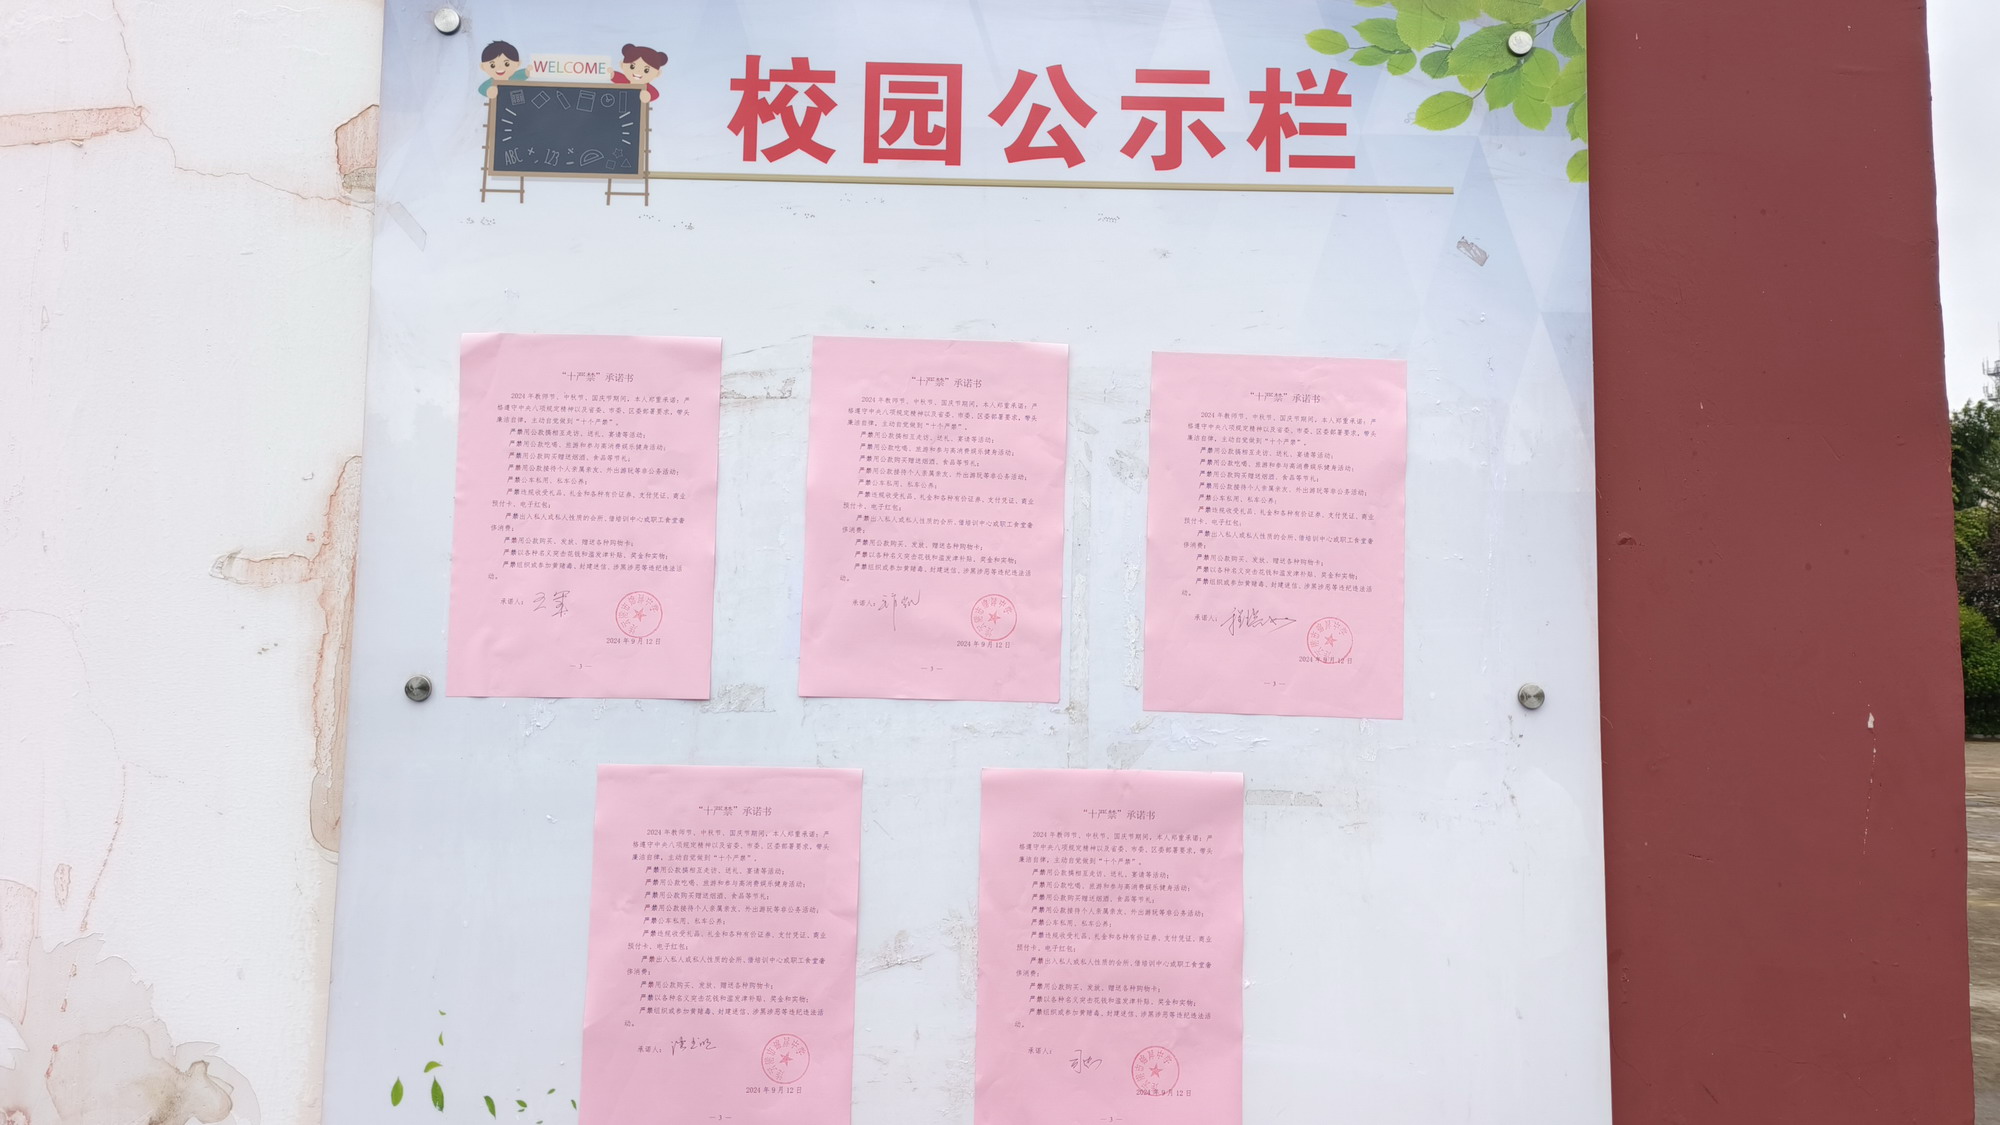 WELCOME
ABC
123
校园公示栏
“十严禁”承诺书
2024年教师节、中秋节、国庆节期间,本人郑重承诺:严
格遵守中央八项规定精神以及省委、市委、区委部署要求,带头
廉洁自律,主动自觉做到“十个严禁”。
严禁用公款搞相互走访、送礼、宴请等活动;
严禁用公款吃喝、旅游和参与高消费娱乐健身活动;
严禁用公款购买赠送烟酒、食品等节礼;
严禁用公款接待个人亲属亲友、外出游玩等非公务活动;
严禁公车私用、私车公养;
严禁违规收受礼品、礼金和各种有价证券、支付凭证、商业
预付卡、电子红包;
严禁出入私人或私人性质的会所、借培训中心或职工食堂奢
侈消费;
严禁用公款购买、发放、赠送各种购物卡;
严禁以各种名义突击花钱和滥发津补贴、奖金和实物;
严禁组织或参加黄赌毒、封建迷信、涉黑涉恶等违纪违法活
动。
承诺人:
2024年9月12日
— 3 —
“十严禁”承诺书
2024年教师节、中秋节、国庆节期间,本人郑重承诺:严
格遵守中央八项规定精神以及省委、市委、区委部署要求,带头
廉洁自律,主动自觉做到“十个严禁”。
严禁用公款搞相互走访、送礼、宴请等活动;
严禁用公款吃喝、旅游和参与高消费娱乐健身活动;
严禁用公款购买赠送烟酒、食品等节礼;
严禁用公款接待个人亲属亲友、外出游玩等非公务活动;
严禁公车私用、私车公养;
严禁违规收受礼品、礼金和各种有价证券、支付凭证、商业
预付卡、电子红包;
严禁出入私人或私人性质的会所、借培训中心或职工食堂奢
侈消费;
严禁用公款购买、发放、赠送各种购物卡;
严禁以各种名义突击花钱和滥发津补贴、奖金和实物;
严禁组织或参加黄赌毒、封建迷信、涉黑涉恶等违纪违法活
动。
承诺人:
2024年9月12日
— 3 —
“十严禁”承诺书
2024年教师节、中秋节、国庆节期间,本人郑重承诺:严
格遵守中央八项规定精神以及省委、市委、区委部署要求,带头
廉洁自律,主动自觉做到“十个严禁”。
严禁用公款搞相互走访、送礼、宴请等活动;
严禁用公款吃喝、旅游和参与高消费娱乐健身活动;
严禁用公款购买赠送烟酒、食品等节礼;
严禁用公款接待个人亲属亲友、外出游玩等非公务活动;
严禁公车私用、私车公养;
严禁违规收受礼品、礼金和各种有价证券、支付凭证、商业
预付卡、电子红包;
严禁出入私人或私人性质的会所、借培训中心或职工食堂奢
侈消费;
严禁用公款购买、发放、赠送各种购物卡;
严禁以各种名义突击花钱和滥发津补贴、奖金和实物;
严禁组织或参加黄赌毒、封建迷信、涉黑涉恶等违纪违法活
动。
承诺人:
2024年9月12日
— 3 —
“十严禁”承诺书
2024年教师节、中秋节、国庆节期间,本人郑重承诺:严
格遵守中央八项规定精神以及省委、市委、区委部署要求,带头
廉洁自律,主动自觉做到“十个严禁”。
严禁用公款搞相互走访、送礼、宴请等活动;
严禁用公款吃喝、旅游和参与高消费娱乐健身活动;
严禁用公款购买赠送烟酒、食品等节礼;
严禁用公款接待个人亲属亲友、外出游玩等非公务活动;
严禁公车私用、私车公养;
严禁违规收受礼品、礼金和各种有价证券、支付凭证、商业
预付卡、电子红包;
严禁出入私人或私人性质的会所、借培训中心或职工食堂奢
侈消费;
严禁用公款购买、发放、赠送各种购物卡;
严禁以各种名义突击花钱和滥发津补贴、奖金和实物;
严禁组织或参加黄赌毒、封建迷信、涉黑涉恶等违纪违法活
动。
承诺人:
2024年9月12日
— 3 —
“十严禁”承诺书
2024年教师节、中秋节、国庆节期间,本人郑重承诺:严
格遵守中央八项规定精神以及省委、市委、区委部署要求,带头
廉洁自律,主动自觉做到“十个严禁”。
严禁用公款搞相互走访、送礼、宴请等活动;
严禁用公款吃喝、旅游和参与高消费娱乐健身活动;
严禁用公款购买赠送烟酒、食品等节礼;
严禁用公款接待个人亲属亲友、外出游玩等非公务活动;
严禁公车私用、私车公养;
严禁违规收受礼品、礼金和各种有价证券、支付凭证、商业
预付卡、电子红包;
严禁出入私人或私人性质的会所、借培训中心或职工食堂奢
侈消费;
严禁用公款购买、发放、赠送各种购物卡;
严禁以各种名义突击花钱和滥发津补贴、奖金和实物;
严禁组织或参加黄赌毒、封建迷信、涉黑涉恶等违纪违法活
动。
承诺人:
2024年9月12日
— 3 —